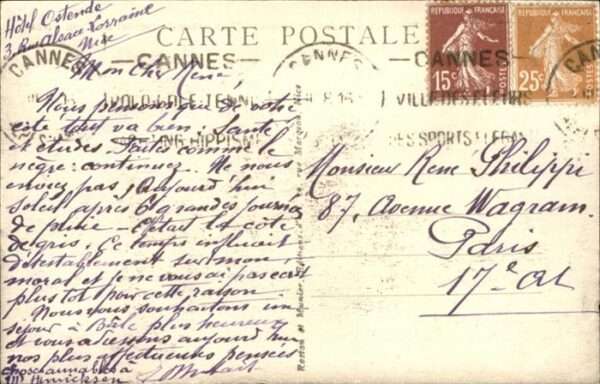 Hôtel Ostende
3, Rue Alsace-Lorraine
Nice
CARTE POSTALE
CANNES
CANNES
CANNES
REPUBLIQUE FRANÇAISE
15c
REPUBLIQUE FRANÇAISE
25c
VILLE DES FLEURS
DES SPORTS ELEGAN
Mon cher René,
Nous pensons que de votre
côté tout va bien. Santé
et études. Faites comme le
nègre: continuez. Ne nous
enviez pas, Aujourd'hui
soleil après 6 grandes journées
de pluie - C'était la côte
de gris. Ce temps influait
détestablement sur mon
moral et je ne vous ai pas écrit
plus tôt pour cette raison.
Nous vous souhaitons un
séjour à Bâle plus heureux
et vous adressons aujourd'hui
nos plus affectueuses pensées
Monsieur René Philippi
87, Avenue Wagram.
Paris
17e At